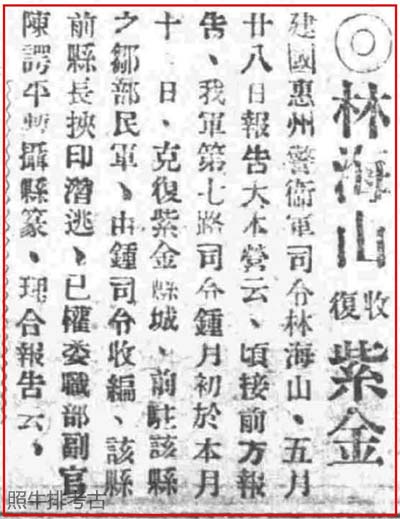 ◎林海山收復紫金
建國惠州警衛軍司令林海山、五月
廿八日報告大本營云、頃接前方報
告、我軍第七路司令鍾月初於本月
十日、克復紫金縣城、前駐該縣
之鄒部民軍、由鍾司令收編、該縣
前縣長挾印潛逃、已權委職部副官
陳諤平暫攝縣篆、理合報告云、
照牛排考古